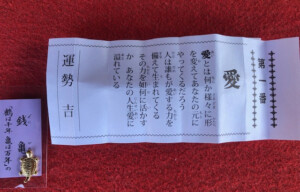 第一番
愛
愛とは何か様々に形
を変えてあなたの元に
やってくるだろう
人は誰もが愛する力を
備えて生まれてくる
その力を如何に活かす
か あなたの人生愛に
溢れている
運勢 吉
銭亀
"鶴は千年 亀は万年"の